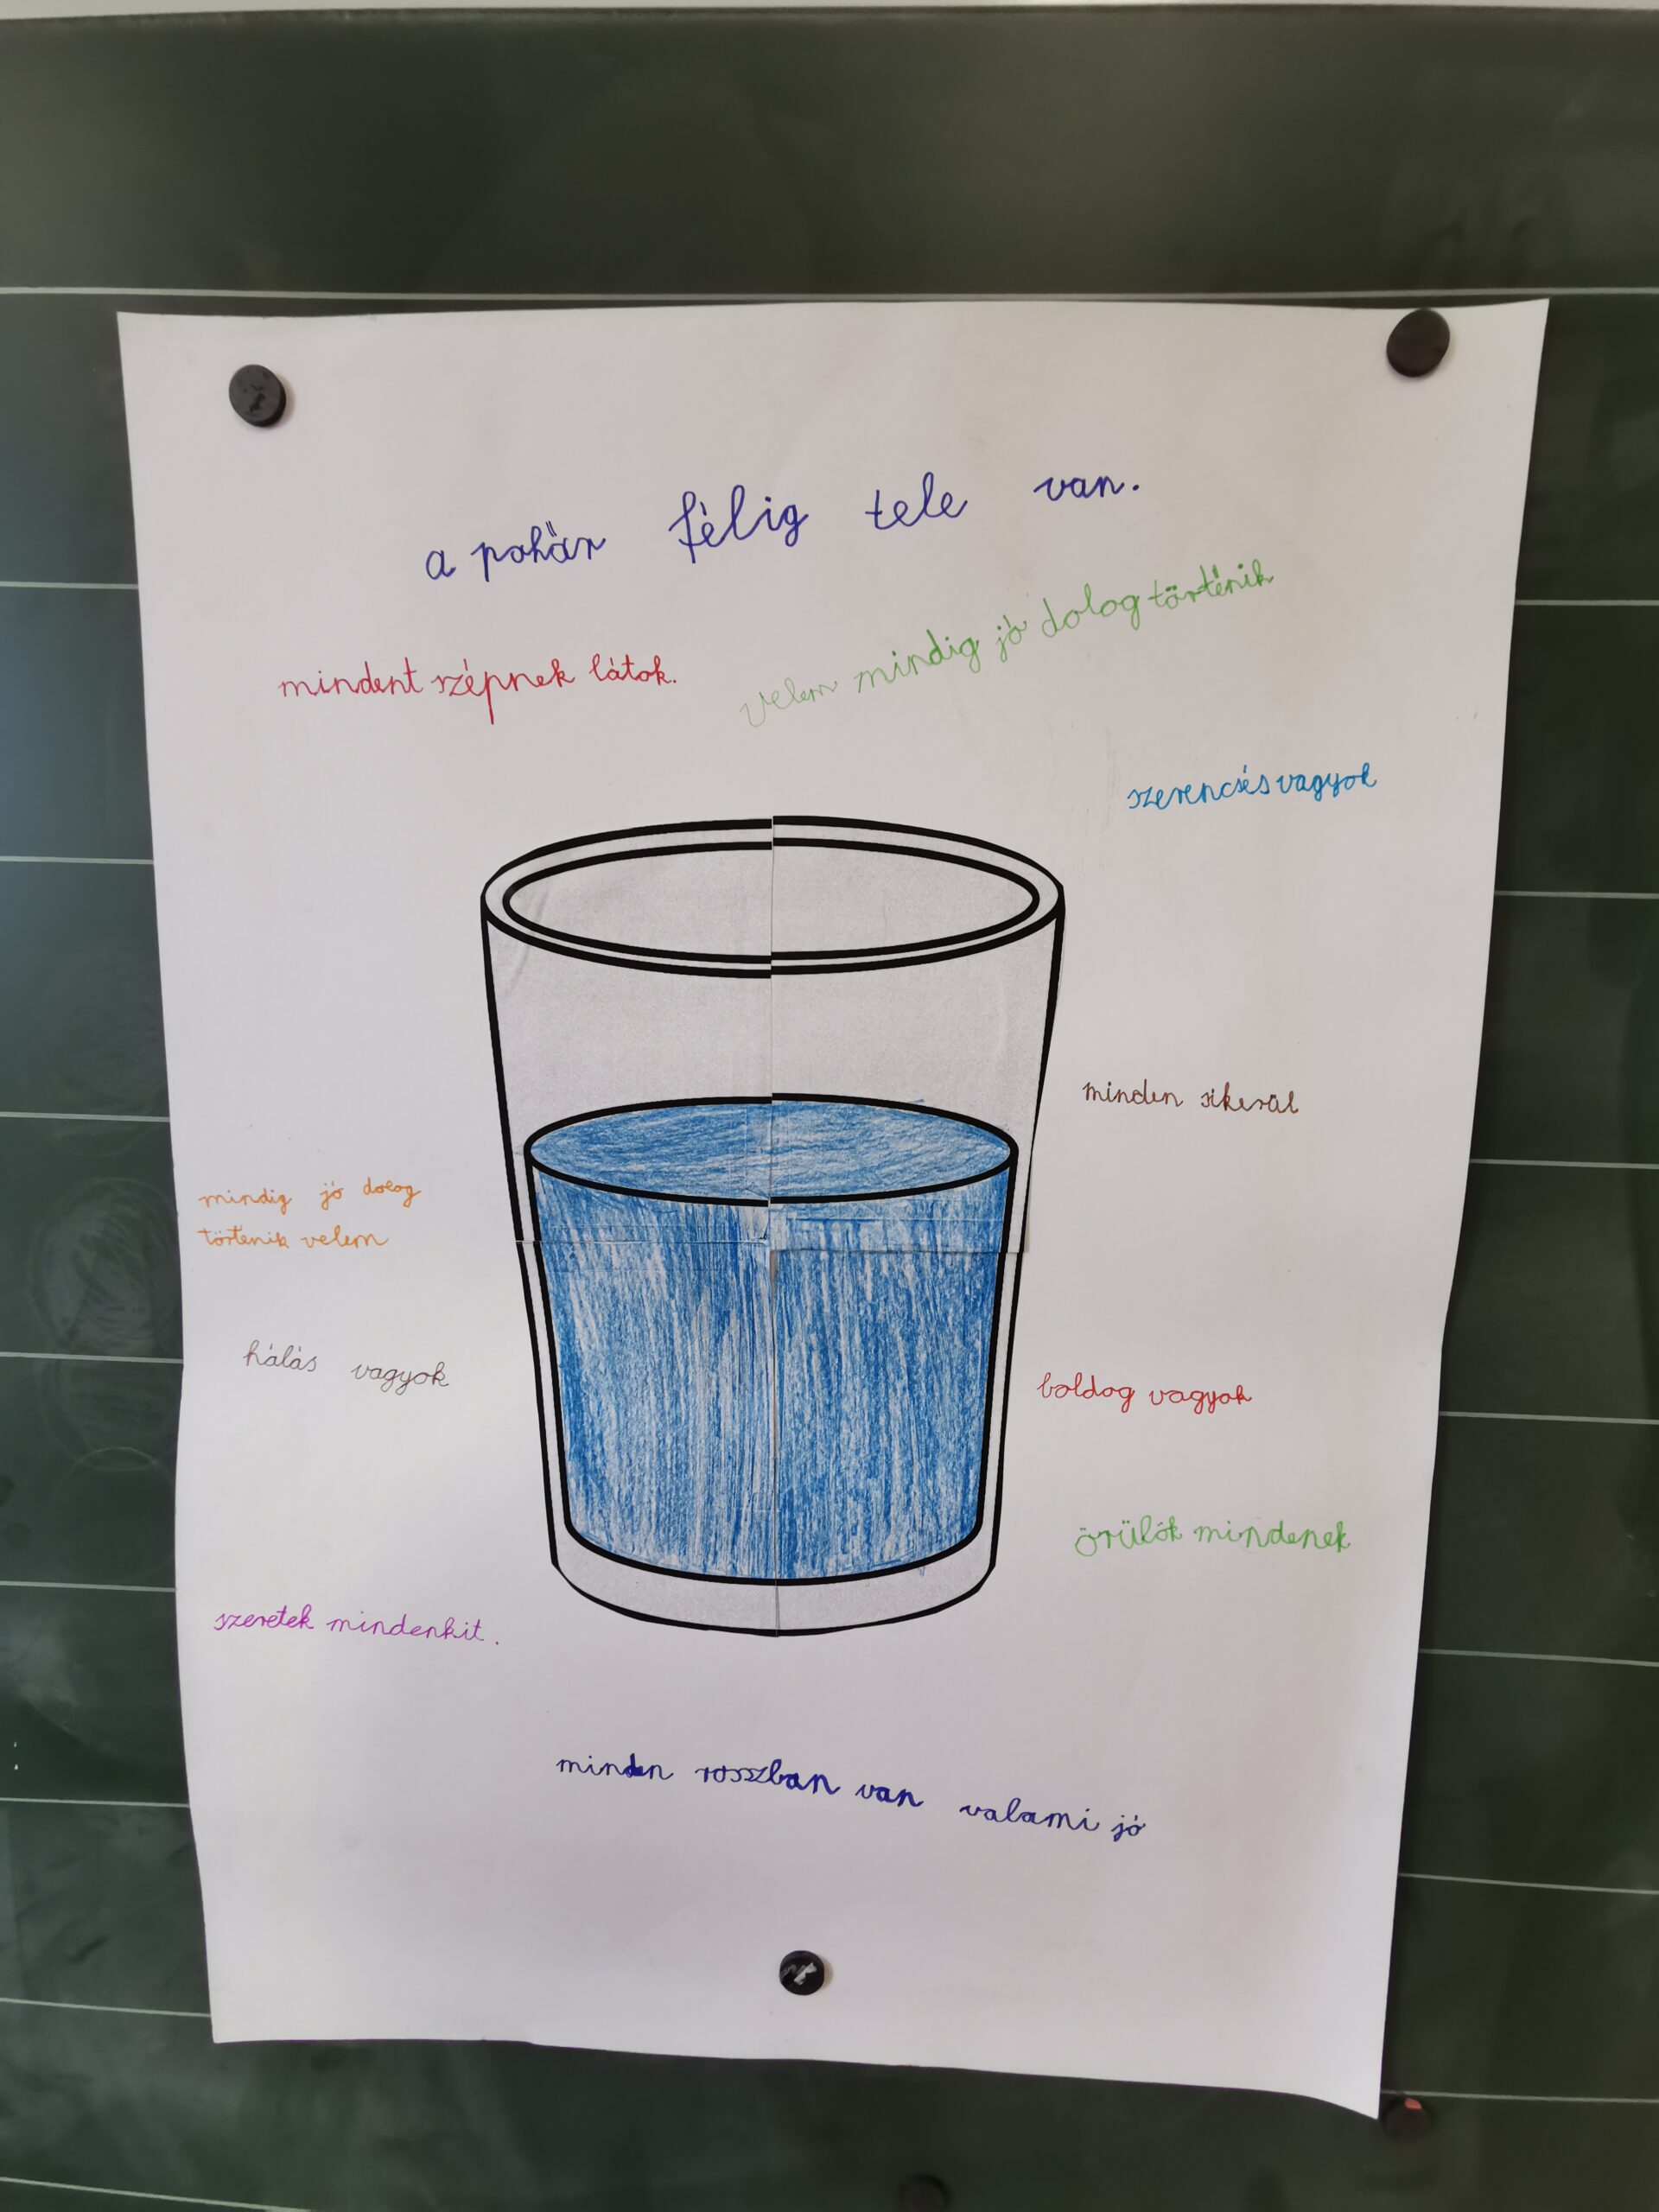 a pohár félig tele van.
velem mindig jó dolog történik
mindent szépnek látok.
szerencsés vagyok
minden sikerül
mindig jó dolog
történik velem
hálás vagyok
boldog vagyok
örülök mindenek
szeretek mindenkit.
minden rosszban van valami jó